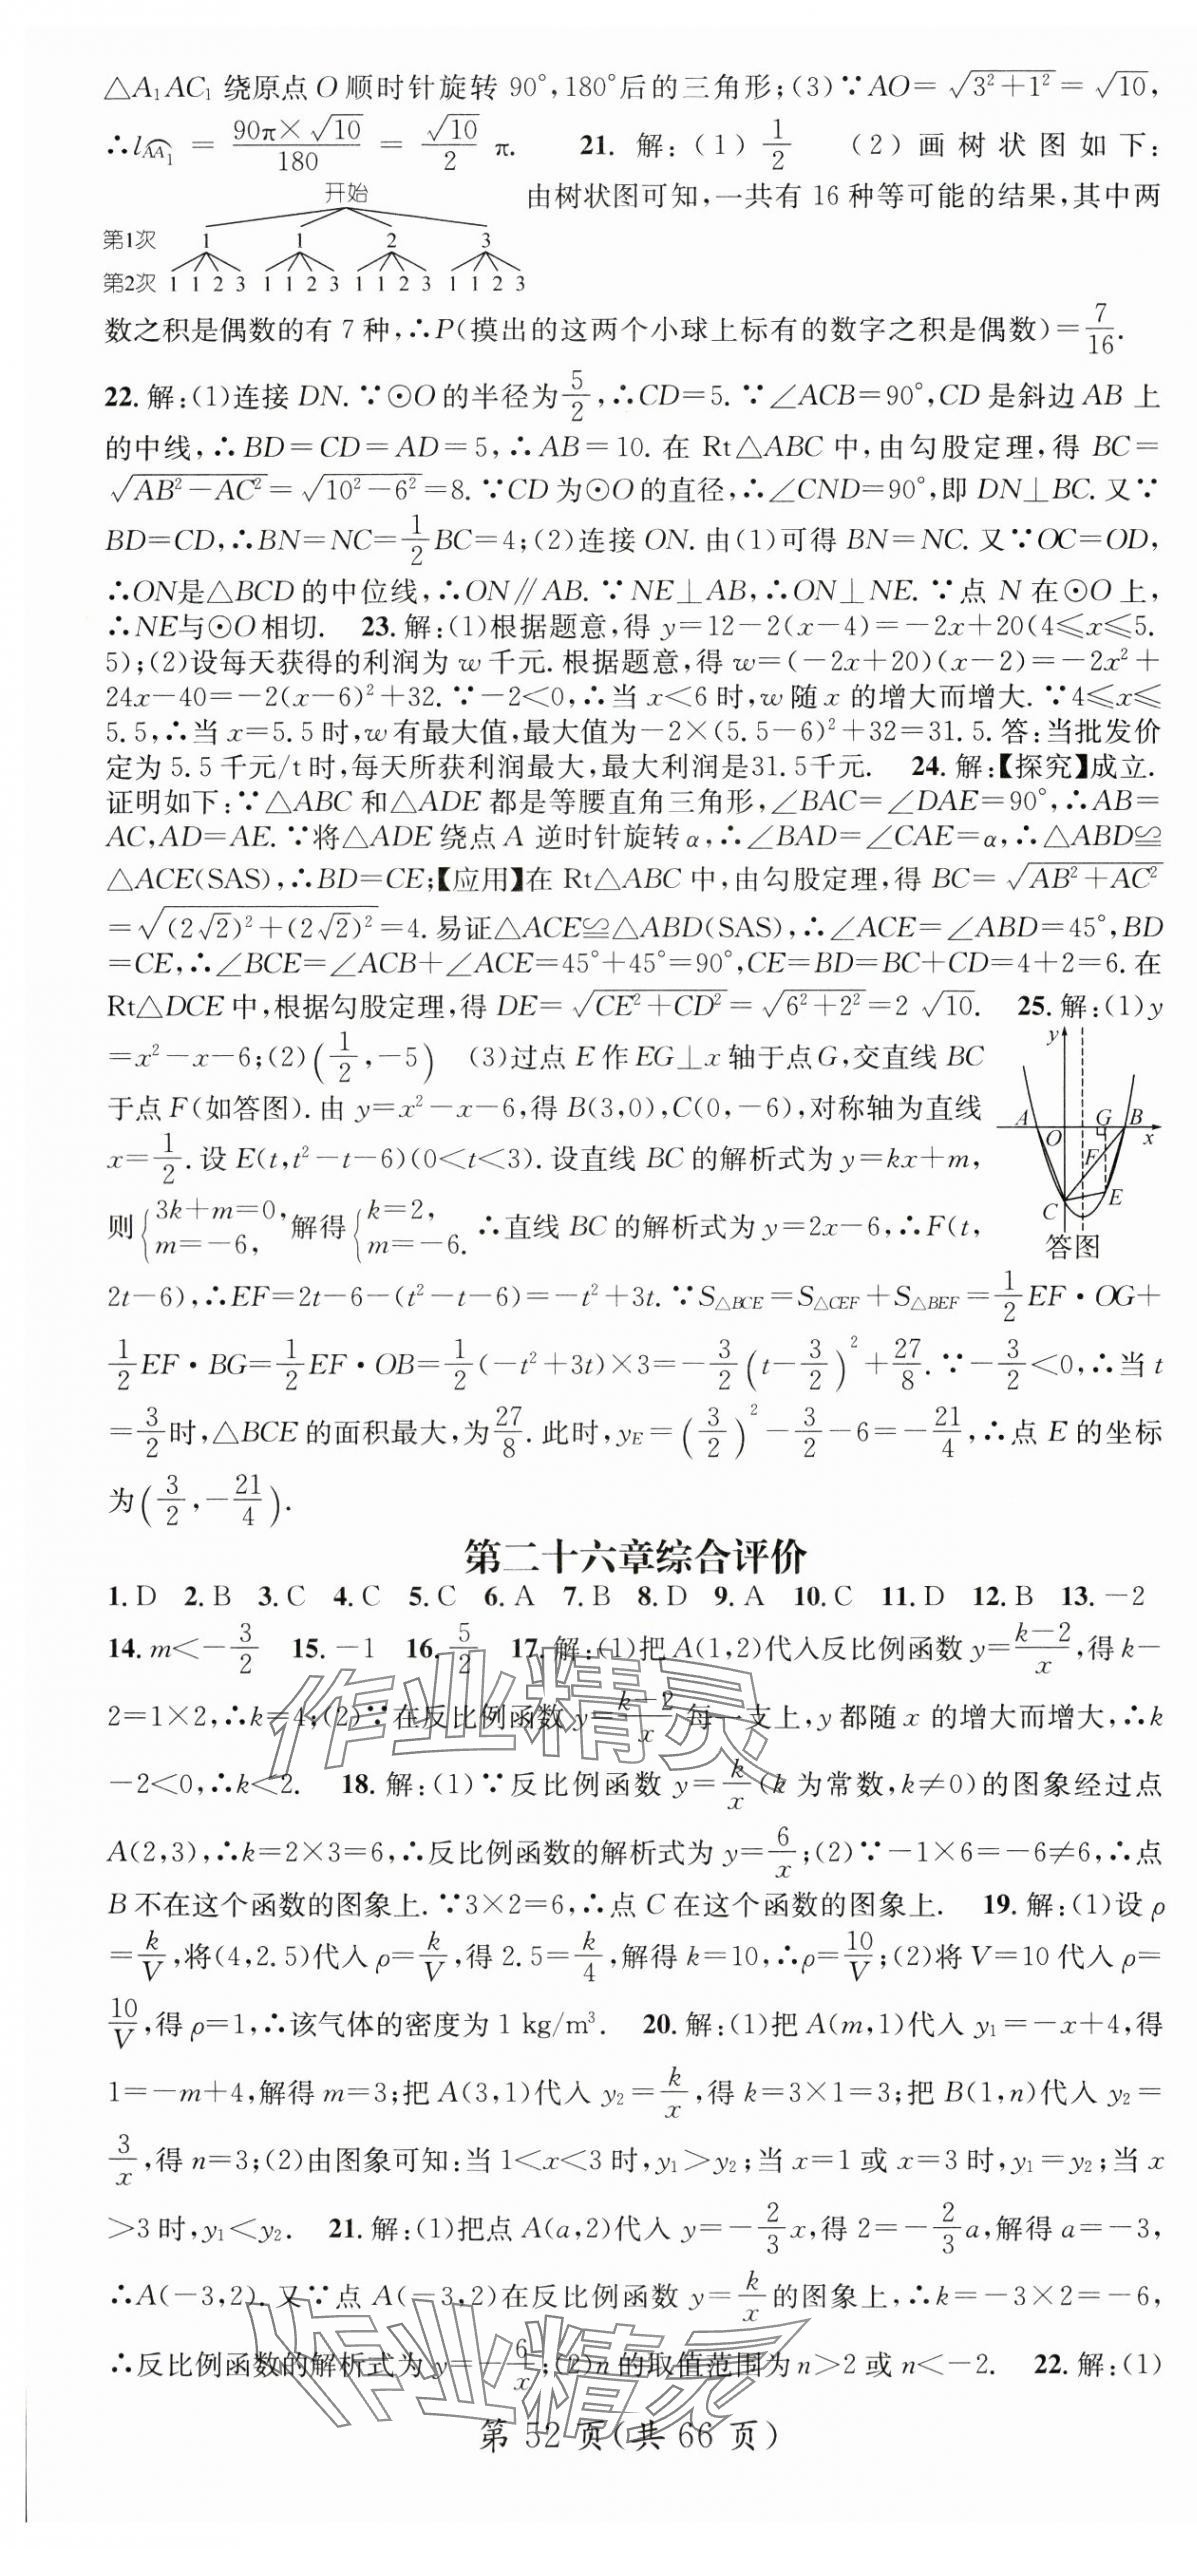 △A₁AC₁ 绕原点 O 顺时针旋转 90°,180°后的三角形;(3)∵AO=√(3²+1²)=√10,
∴l⌒AA₁ = 90π×√10/180 = √10/2 π. 21. 解:(1) 1/2 (2)画树状图如下:
开始 由树状图可知,一共有 16 种等可能的结果,其中两
第1次 1 1 2 3
第2次 1 1 2 3 1 1 2 3 1 1 2 3 1 1 2 3
数之积是偶数的有 7 种,∴P(摸出的这两个小球上标有的数字之积是偶数)=7/16.
22. 解:(1)连接 DN. ∵⊙O 的半径为 5/2,∴CD=5. ∵∠ACB=90°,CD 是斜边 AB 上
的中线,∴BD=CD=AD=5,∴AB=10. 在 Rt△ABC 中,由勾股定理,得 BC=
√(AB²-AC²)=√(10²-6²)=8. ∵CD 为⊙O 的直径,∴∠CND=90°,即 DN⊥BC. 又∵
BD=CD,∴BN=NC=1/2 BC=4;(2)连接 ON. 由(1)可得 BN=NC. 又∵OC=OD,
∴ON是△BCD 的中位线,∴ON∥AB. ∵NE⊥AB,∴ON⊥NE. ∵点 N 在⊙O 上,
∴NE与⊙O 相切. 23. 解:(1)根据题意,得 y=12-2(x-4)=-2x+20(4≤x≤5.
5);(2)设每天获得的利润为 w 千元. 根据题意,得 w=(-2x+20)(x-2)=-2x²+
24x-40=-2(x-6)²+32. ∵-2<0,∴当 x<6 时,w 随 x 的增大而增大. ∵4≤x≤
5.5,∴当 x=5.5 时,w 有最大值,最大值为-2×(5.5-6)²+32=31.5. 答:当批发价
定为 5.5 千元/t 时,每天所获利润最大,最大利润是31.5千元. 24. 解:【探究】成立.
证明如下:∵△ABC 和△ADE 都是等腰直角三角形,∠BAC=∠DAE=90°,∴AB=
AC,AD=AE. ∵将△ADE 绕点 A 逆时针旋转 α,∴∠BAD=∠CAE=α,∴△ABD≌
△ACE(SAS),∴BD=CE;【应用】在 Rt△ABC 中,由勾股定理,得 BC=√(AB²+AC²)
=√((2√2)²+(2√2)²)=4. 易证△ACE≌△ABD(SAS),∴∠ACE=∠ABD=45°,BD
=CE,∴∠BCE=∠ACB+∠ACE=45°+45°=90°,CE=BD=BC+CD=4+2=6. 在
Rt△DCE 中,根据勾股定理,得 DE=√(CE²+CD²)=√(6²+2²)=2√10. 25. 解:(1)y
=x²-x-6;(2)(1/2,-5) (3)过点 E 作 EG⊥x 轴于点G,交直线 BC
于点 F(如答图). 由 y=x²-x-6,得 B(3,0),C(0,-6),对称轴为直线
x=1/2. 设 E(t,t²-t-6)(0<t<3). 设直线 BC 的解析式为 y=kx+m,
则{3k+m=0, m=-6, 解得{k=2, m=-6. ∴直线 BC 的解析式为 y=2x-6,∴F(t,
y A O G B x F E C
答图
2t-6),∴EF=2t-6-(t²-t-6)=-t²+3t. ∵S△BCE=S△CEF+S△BEF=1/2 EF·OG+
1/2 EF·BG=1/2 EF·OB=1/2(-t²+3t)×3=-3/2(t-3/2)²+27/8. ∵-3/2<0,∴当 t
=3/2时,△BCE 的面积最大,为27/8. 此时,yE=(3/2)²-3/2-6=-21/4,∴点 E 的坐标
为(3/2,-21/4).
第二十六章综合评价
1. D 2. B 3. C 4. C 5. C 6. A 7. B 8. D 9. A 10. C 11. D 12. B 13. -2
14. m<-3/2 15. -1 16. 5/2 17. 解:(1)把 A(1,2)代入反比例函数 y=(k-2)/x,得 k-
2=1×2,∴k=4;(2)∵在反比例函数 y=(k-2)/x 每一支上,y 都随 x 的增大而增大,∴k
-2<0,∴k<2. 18. 解:(1)∵反比例函数 y=k/x(k 为常数,k≠0)的图象经过点
A(2,3),∴k=2×3=6,∴反比例函数的解析式为 y=6/x;(2)∵-1×6=-6≠6,∴点
B 不在这个函数的图象上. ∵3×2=6,∴点 C 在这个函数的图象上. 19. 解:(1)设 ρ
=k/V,将(4,2.5)代入 ρ=k/V,得 2.5=k/4,解得 k=10,∴ρ=10/V;(2)将 V=10 代入 ρ=
10/V,得 ρ=1,∴该气体的密度为 1 kg/m³. 20. 解:(1)把 A(m,1)代入 y₁=-x+4,得
1=-m+4,解得 m=3;把 A(3,1)代入 y₂=k/x,得 k=3×1=3;把 B(1,n)代入 y₂=
3/x,得 n=3;(2)由图象可知:当 1<x<3 时,y₁>y₂;当 x=1 或 x=3 时,y₁=y₂;当 x
>3 时,y₁<y₂. 21. 解:(1)把点 A(a,2)代入 y=-2/3 x,得 2=-2/3 a,解得 a=-3,
∴A(-3,2). 又∵点 A(-3,2)在反比例函数 y=k/x 的图象上,∴k=-3×2=-6,
∴反比例函数的解析式为 y=-6/x;(2)n 的取值范围为 n>2 或 n<-2. 22. 解:(1)
第 52 页(共 66 页)
作业精灵
作业精灵